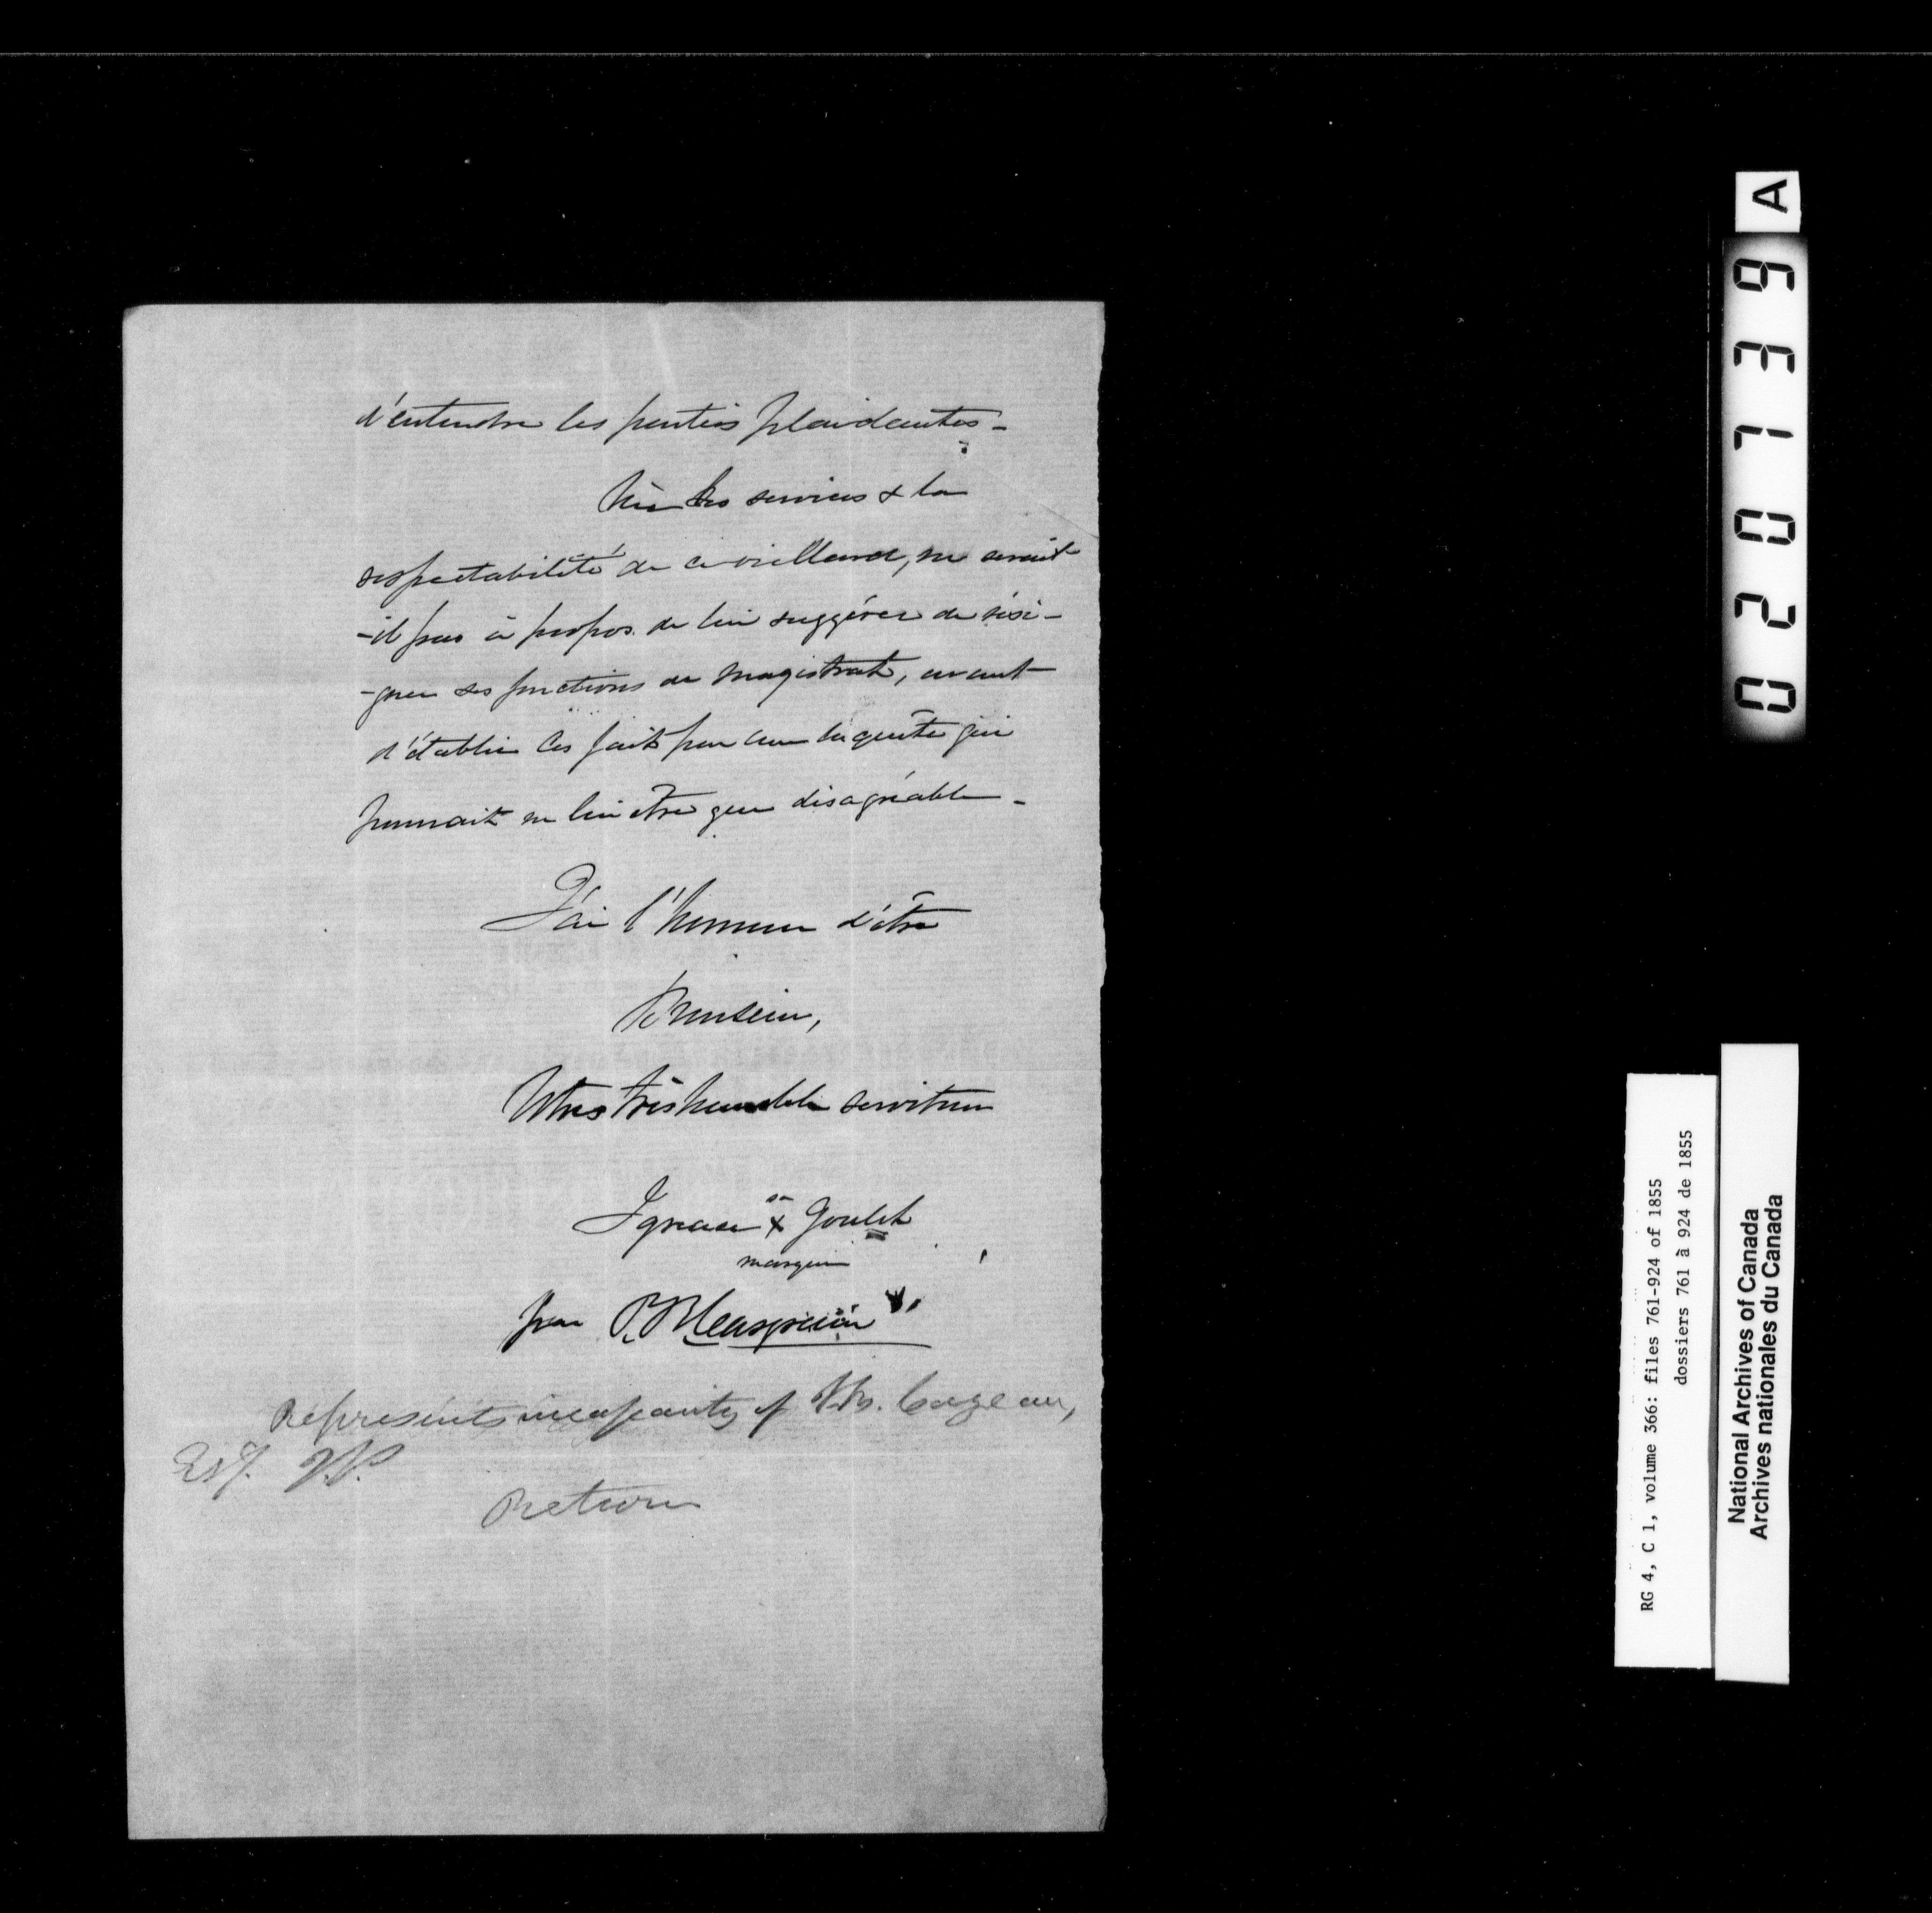 d'entendre les parties plaidantes -
Vu les services & la
respectabilité de ce vieillard, ne serait
-il pas à propos de lui suggérer de rési-
-gner ses fonctions de magistrat, avant
d'établir ces faits par une enquête qui
pourrait ne lui être que désagréable -
J'ai l'honneur d'être
Monsieur,
Votre très humble serviteur
Ignace sa x Goulet
marque
par P.
Represents incapacity of Cazeau,
Esq. J.P.
Return
020739 A
RG 4, C 1, volume 366: files 761-924 of 1855
dossiers 761 à 924 de 1855
National Archives of Canada
Archives nationales du Canada